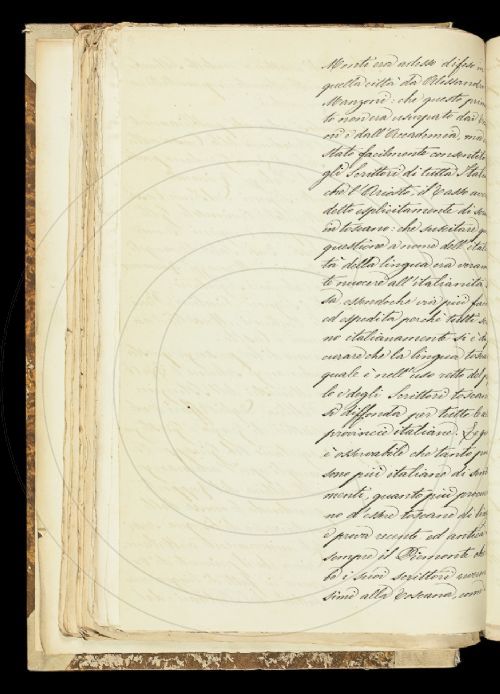 Monti era adesso difeso in
quella città da Alessandro
Manzoni: che questo prim
to non era usurpato dai
ni e dall'Accademia, ma
stato facilmente consentito
gli Scrittori di tutta Italia
che l'Ariosto, il Tasso av
detto esplicitamente di
in toscano: che suscitare
questione a nome dell'ital
tà della lingua era veram
te nuocere all'italianità
sa essendochè era più fac
ed espedita perchè tutti
no italianamente si è di
curare che la lingua tosca
quale è nell'uso retto del p
lo e degli Scrittori toscan
si diffonda per tutte le
provincie italiane.
è osservabile che tanto
sono più italiane di
menti, quanto più procu
no d'essere toscane di
è prova recente ed antica
sempre il Piemonte
be i suoi scrittori
simi alla Toscana, com